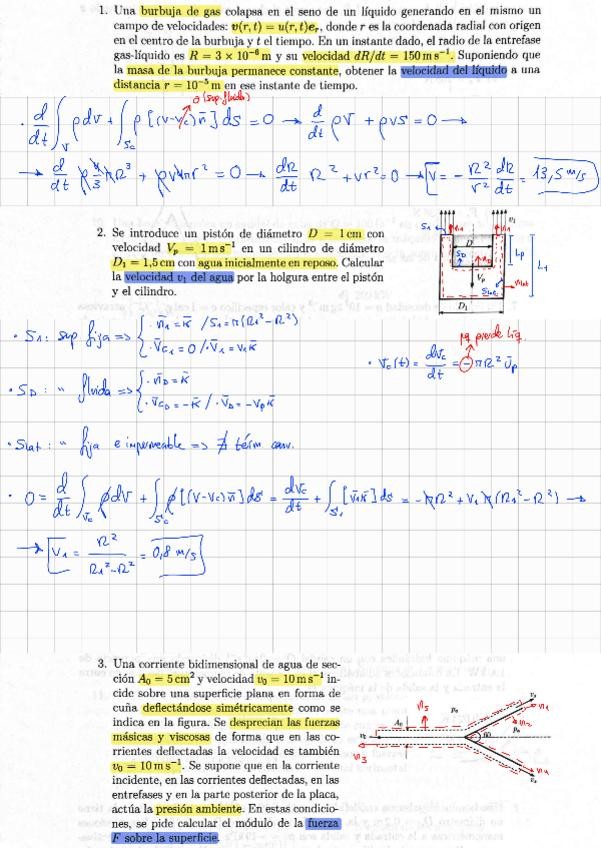 1. Una burbuja de gas colapsa en el seno de un líquido generando en el mismo un
campo de velocidades: v(r, t) = u(r, t)e_r, donde r es la coordenada radial con origen
en el centro de la burbuja y t el tiempo. En un instante dado, el radio de la entrefase
gas-líquido es R = 3 × 10⁻⁶ m y su velocidad dR/dt = 150 m s⁻¹. Suponiendo que
la masa de la burbuja permanece constante, obtener la velocidad del líquido a una
distancia r = 10⁻⁵ m en ese instante de tiempo.
0 (sup. fluida)
· d/dt ∫_V ρdV + ∫_Sc ρ[(v-vc)n̄]ds = 0 → d/dt ρV + ρvs = 0 →
→ d/dt ρ 4/3 πR³ + ρv4πr² = 0 → dR/dt R² + vr² = 0 → v = - R²/r² dR/dt = 13,5 m/s
2. Se introduce un pistón de diámetro D = 1 cm con
velocidad V_p = 1 m s⁻¹ en un cilindro de diámetro
D₁ = 1,5 cm con agua inicialmente en reposo. Calcular
la velocidad v₁ del agua por la holgura entre el pistón
y el cilindro.
S₁
v₁
D
S_D
V_p
L_p
L₁
Slat
D₁
· S₁: sup fija => { · n̄₁ = k̄ / S₁ = π(R₁² - R²)
· v̄c₁ = 0 / · v̄₁ = v₁k̄
pq pierde líq.
· Vc(t) = dVc/dt = - πR² v̄p
· S_D: " fluida => { · n̄_D = k̄
· v̄c_D = -k̄ / · v̄_D = -v_p k̄
· Slat: " fija e impermeable => ∄ térm conv.
· 0 = d/dt ∫_Vc ρdV + ∫_Sc ρ[(v-vc)n̄]ds = dVc/dt + ∫_S₁ [v̄₁k̄]ds = -πR² + v₁π(R₁² - R²) →
→ v₁ = R²/(R₁² - R²) = 0,8 m/s
3. Una corriente bidimensional de agua de sec-
ción A₀ = 5 cm² y velocidad v₀ = 10 m s⁻¹ in-
cide sobre una superficie plana en forma de
cuña deflectándose simétricamente como se
indica en la figura. Se desprecian las fuerzas
másicas y viscosas de forma que en las co-
rrientes deflectadas la velocidad es también
v₀ = 10 m s⁻¹. Se supone que en la corriente
incidente, en las corrientes deflectadas, en las
entrefases y en la parte posterior de la placa,
actúa la presión ambiente. En estas condicio-
nes, se pide calcular el módulo de la fuerza
F sobre la superficie.
n̄₅
A₀
p_a
v₀
n̄₃
60
p_a
n̄₂
v₀
n̄₄
v₀